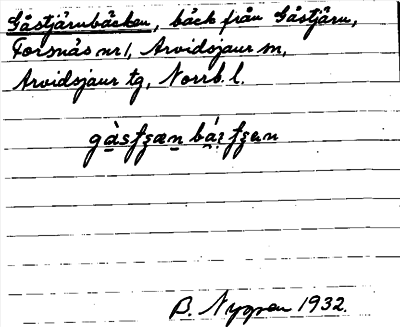 Gåstjärnbäcken, bäck från Gåstjärn,
Forsnäs nr 1, Arvidsjaur sn,
Arvidsjaur tg, Norrb. l.
B. Nygren 1932.